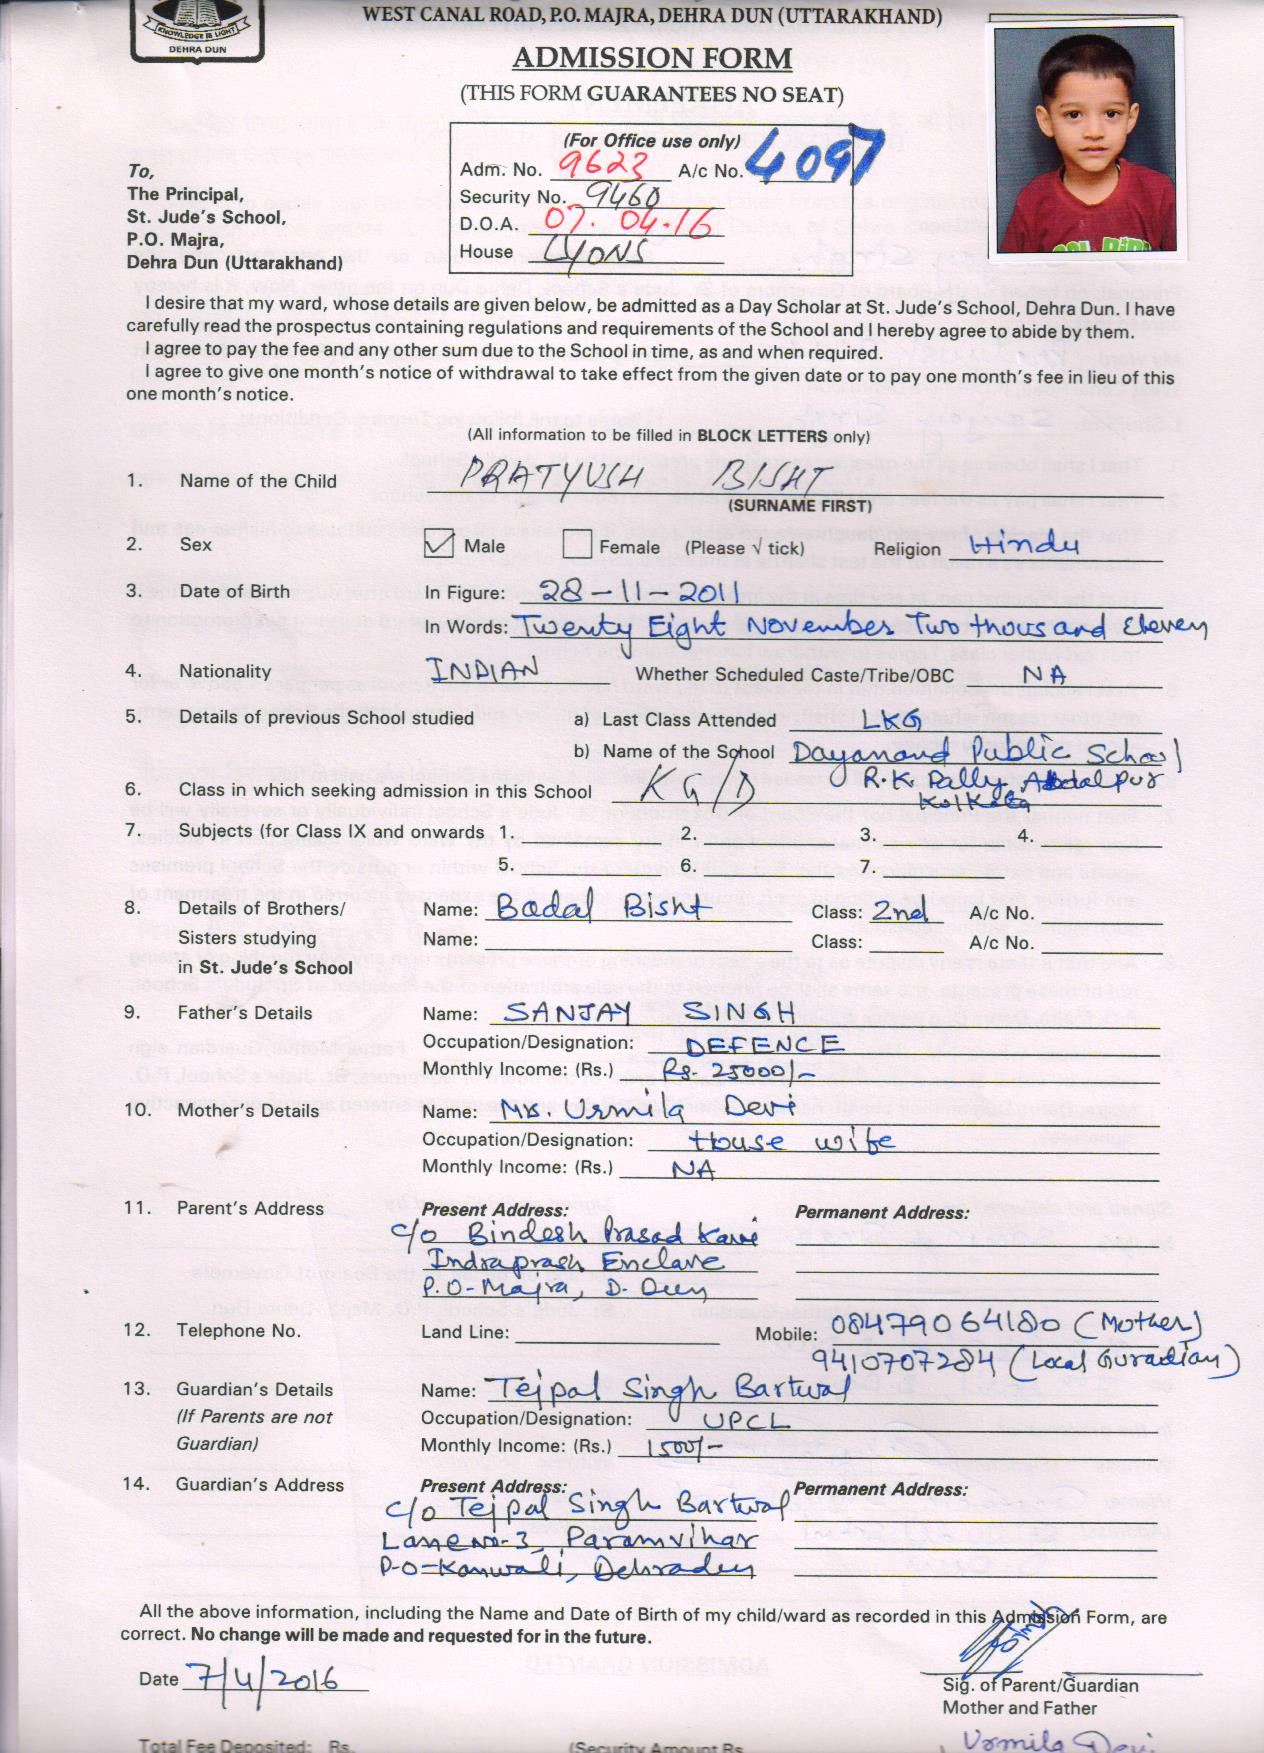 KNOWLEDGE IS LIGHT
DEHRA DUN
WEST CANAL ROAD, P.O. MAJRA, DEHRA DUN (UTTARAKHAND)
ADMISSION FORM
(THIS FORM GUARANTEES NO SEAT)
(For Office use only)
Adm. No. 9623 A/c No. 4097
Security No. 9460
D.O.A. 07. 04.16
House LYONS
To,
The Principal,
St. Jude's School,
P.O. Majra,
Dehra Dun (Uttarakhand)
I desire that my ward, whose details are given below, be admitted as a Day Scholar at St. Jude's School, Dehra Dun. I have
carefully read the prospectus containing regulations and requirements of the School and I hereby agree to abide by them.
I agree to pay the fee and any other sum due to the School in time, as and when required.
I agree to give one month's notice of withdrawal to take effect from the given date or to pay one month's fee in lieu of this
one month's notice.
(All information to be filled in BLOCK LETTERS only)
1. Name of the Child PRATYUSH BISHT
(SURNAME FIRST)
2. Sex Male Female (Please √ tick) Religion Hindu
3. Date of Birth In Figure: 28-11-2011
In Words: Twenty Eight November Two thousand Eleven
4. Nationality INDIAN Whether Scheduled Caste/Tribe/OBC NA
5. Details of previous School studied a) Last Class Attended LKG
b) Name of the School Dayanand Public School
R.K. Pally,
Kolkata
6. Class in which seeking admission in this School KG/D
7. Subjects (for Class IX and onwards 1. 2. 3. 4.
5. 6. 7.
8. Details of Brothers/ Name: Badal Bisht Class: 2nd A/c No.
Sisters studying Name: Class: A/c No.
in St. Jude's School
9. Father's Details Name: SANJAY SINGH
Occupation/Designation: DEFENCE
Monthly Income: (Rs.) Rs. 25000/-
10. Mother's Details Name: Mrs. Urmila Devi
Occupation/Designation: House wife
Monthly Income: (Rs.) NA
11. Parent's Address Present Address: Permanent Address:
C/o Bindesh Prasad
Indraprash Enclave
P.O-Majra, D. Dun
12. Telephone No. Land Line: Mobile: 08479064180 (Mother)
9410707284 (Local Guradian)
13. Guardian's Details Name: Tejpal Singh Bartwal
(If Parents are not Occupation/Designation: UPCL
Guardian) Monthly Income: (Rs.) 1500/-
14. Guardian's Address Present Address: Permanent Address:
C/o Tejpal Singh Bartwal
Lane No-3, Paramvihar
P-O-Kanwali, Dehradun
All the above information, including the Name and Date of Birth of my child/ward as recorded in this Admission Form, are
correct. No change will be made and requested for in the future.
Date 7/4/2016
Sig. of Parent/Guardian
Mother and Father
Urmila Devi
Total Fee Deposited: Rs. (Security Amount Rs.